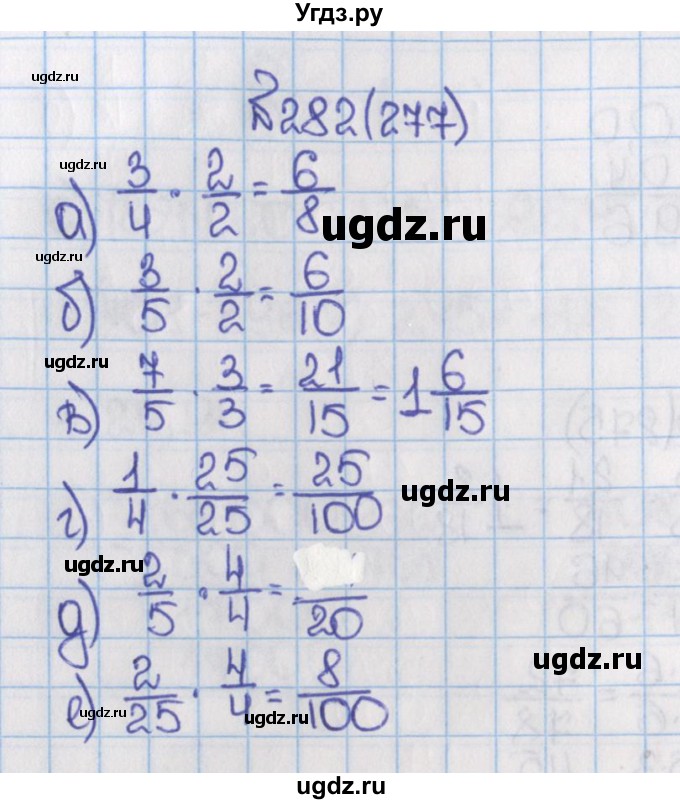 Угдз.ру
ugdz.ru
№282(277)
ugdz.ru
а) 3/4 · 2/2 = 6/8
ugdz.ru
ugdz.ru
б) 3/5 · 2/2 = 6/10
ugdz.ru
в) 7/5 · 3/3 = 21/15 = 1 6/15
г) 1/4 · 25/25 = 25/100
ugdz.ru
ugdz.ru
д) 2/5 · 4/4 = /20
ugdz.ru
е) 2/25 · 4/4 = 8/100
ugdz.ru
ugdz.ru
ugdz.ru